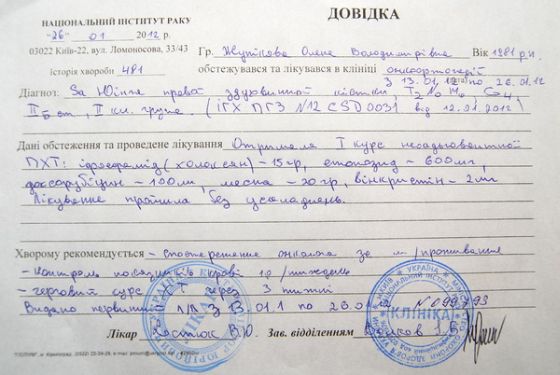 НАЦІОНАЛЬНИЙ ІНСТИТУТ РАКУ
ДОВІДКА
"26" 01 2012 р.
03022 Київ-22, вул. Ломоносова, 33/43
Гр. Олена Володимирівна Вік 1981 р.н.
історія хвороби 481
обстежувався та лікувався в клініці
з 13.01.12 по 26.01.12
Діагноз: Sa Юінга правої кістки T2 N0 M0 G4,
II ст, II кл. група. (ІГХ ПГЗ N12 CSD0031 від 12.01.2012)
Дані обстеження та проведене лікування Отримала I курс неоад'ювантної
ПХТ: іфосфамід (холоксан) - 15 гр, етопозид - 600 мг,
доксорубіцин - 100 мг, месна - 20 гр, вінкристін - 2 мг
Лікування пройшла без ускладнень.
Хворому рекомендується - спостереження онколога за м/проживання
- контроль показників крові 1р/тиждень
- черговий курс через 3 тижні
Видано первинний л/л з 13.01.1 по 26.0
Лікар Костюк В.Ю. Зав. відділенням
УКРАЇНА
КЛІНІКА